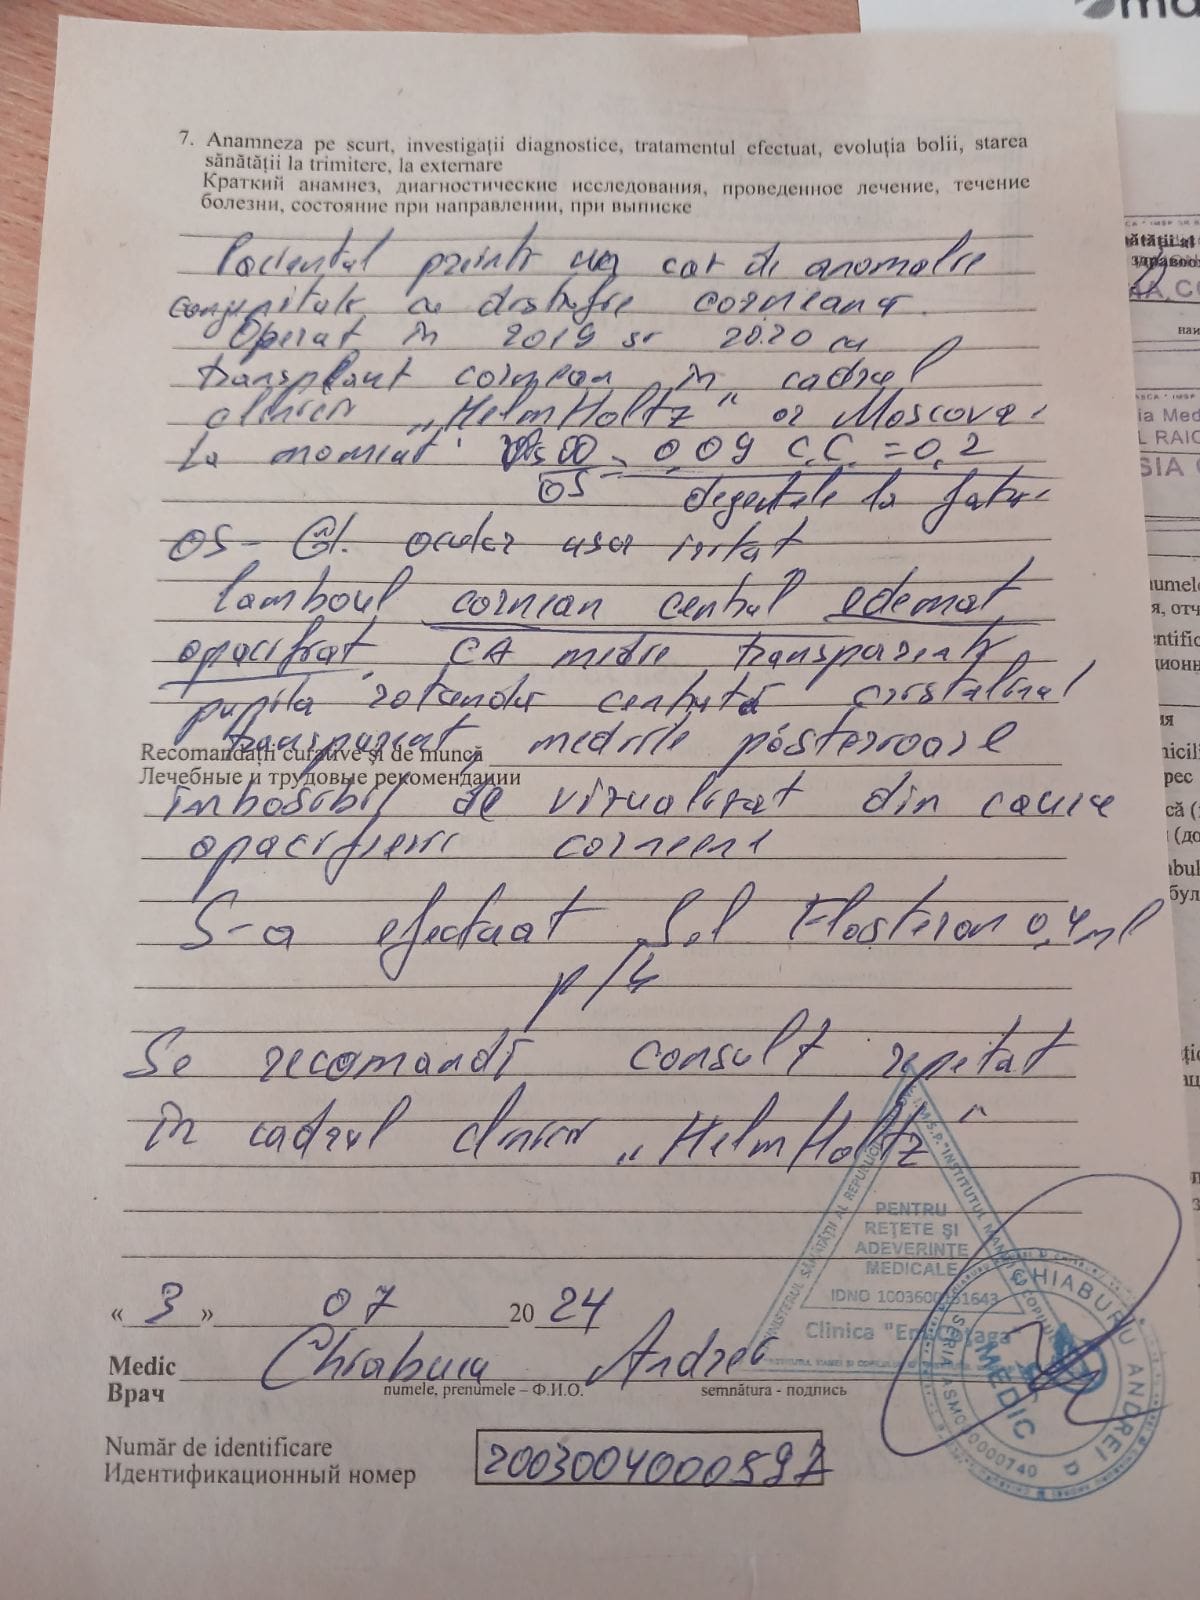 7. Anamneza pe scurt, investigații diagnostice, tratamentul efectuat, evoluția bolii, starea
sănătății la trimitere, la externare
Краткий анамнез, диагностические исследования, проведенное лечение, течение
болезни, состояние при направлении, при выписке
Pacientul prezintă un caz de anomalie
congenitală cu distrofie corneană.
Operat în 2019 și 2020 cu
transplant cornean în cadrul
clinicii "HelmHoltz" or Moscova.
La moment OD = 0,09 C.C. = 0,2
OS = degetele la față
OS - Gl. ocular ușor iritat
lamboul cornean central edemat
opacifiat, CA medie, transparentă
pupila rotundă centrată cristalinul
transparent, mediile posterioare
Recomandații curative și de muncă
Лечебные и трудовые рекомендации
imposibil de vizualizat din cauza
opacifierii corneene
S-a efectuat Sol Flosteron 0,4 ml
p/b
Se recomandă consult repetat
în cadrul clinicii "HelmHoltz"
MINISTERUL SĂNĂTĂȚII AL REPUBLICII
I.M.S.P. "INSTITUTUL MAMEI ȘI COPILULUI"
PENTRU
REȚETE ȘI
ADEVERINȚE
MEDICALE
IDNO 1003600151643
Clinica "Em.Coțaga"
« 3 » 07 20 24
Medic Chiaburu Andrei
Врач
numele, prenumele – Ф.И.О. semnătura - подпись
CHIABURU ANDREI
MEDIC
Număr de identificare
Идентификационный номер
2003004000597